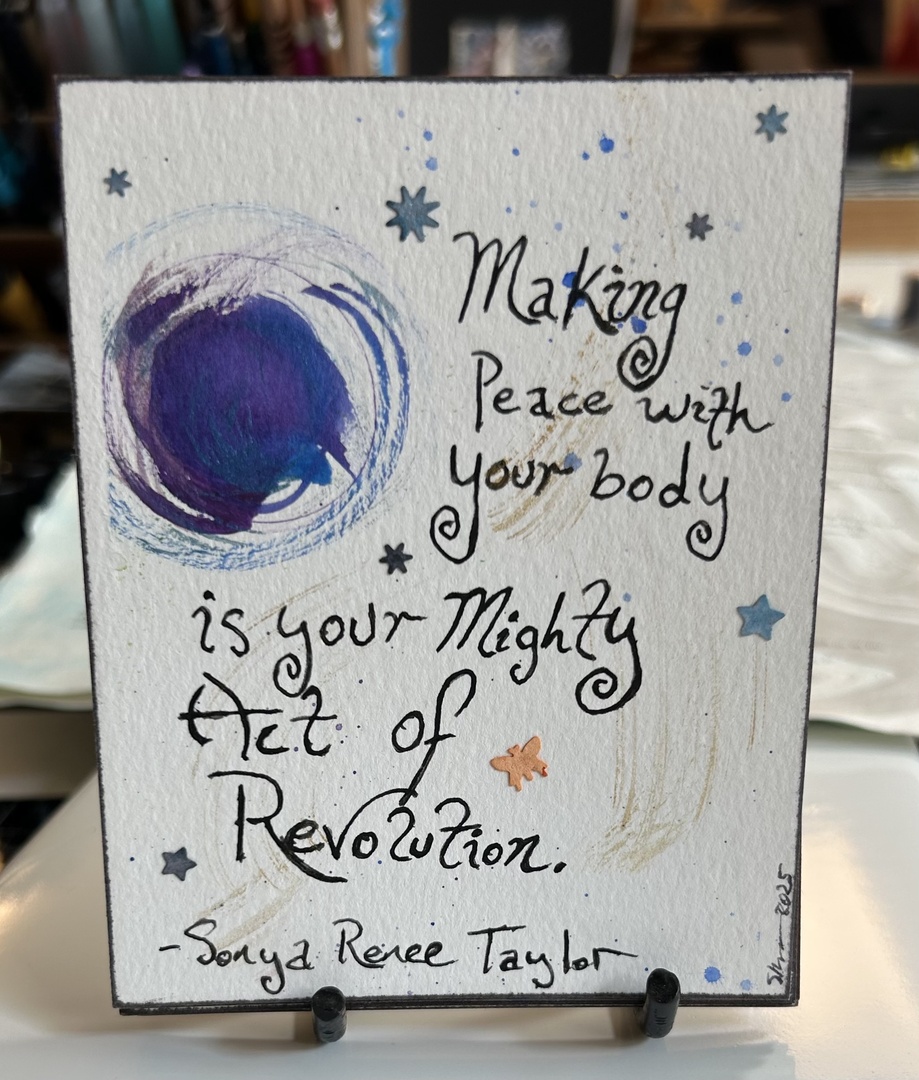 Making
Peace with
your body
is your Mighty
Act of
Revolution.
-Sonya Renee Taylor
2025